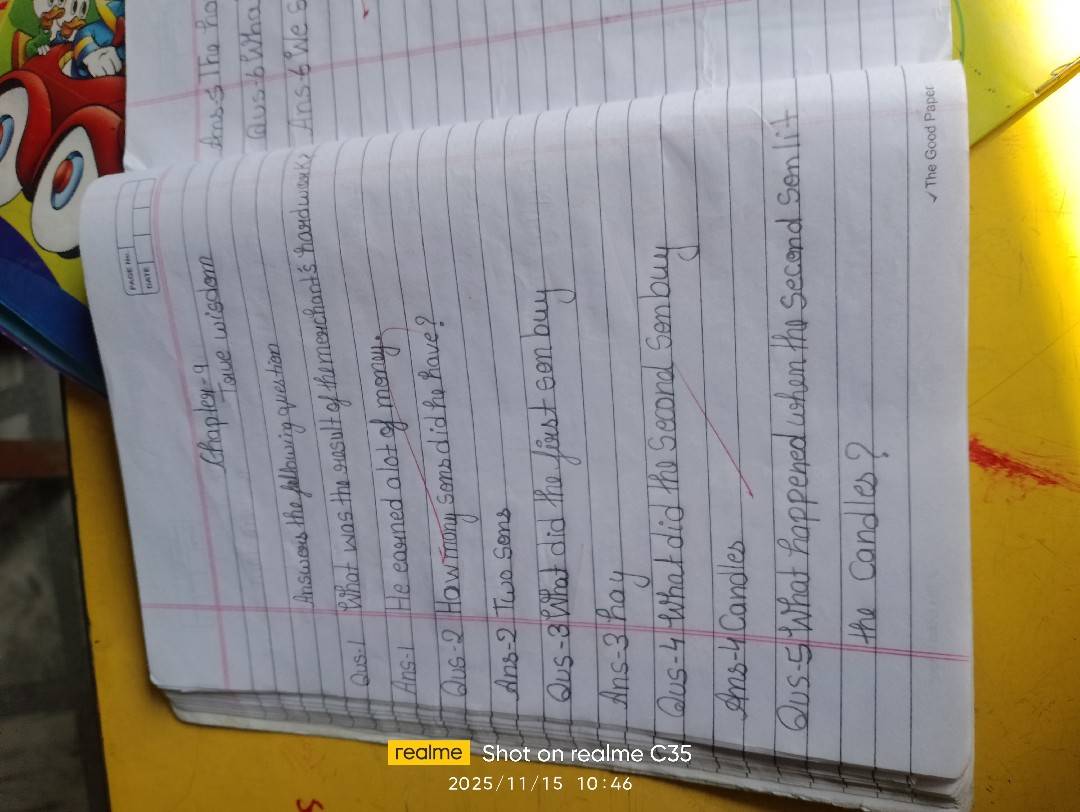 PAGE No.
DATE
Chapley-9
Toue wisdom
Answers the following question
Qus-1 What was the result of themerchant's hardworks
Ans-1 He earned a lot of money.
Qus-2 How many sons did he have?
Ans-2 Two sons
Qus-3 What did the first son buy
Ans-3 hay
Qus-4 What did the Second Son buy
Ans-4 Candles
Qus-5 What happened when the Second Son lit
the Candles?
✓ The Good Paper
Ans-5 The ho
Qus-6 Wha
Ans-6 We s
realme Shot on realme C35
2025/11/15 10:46